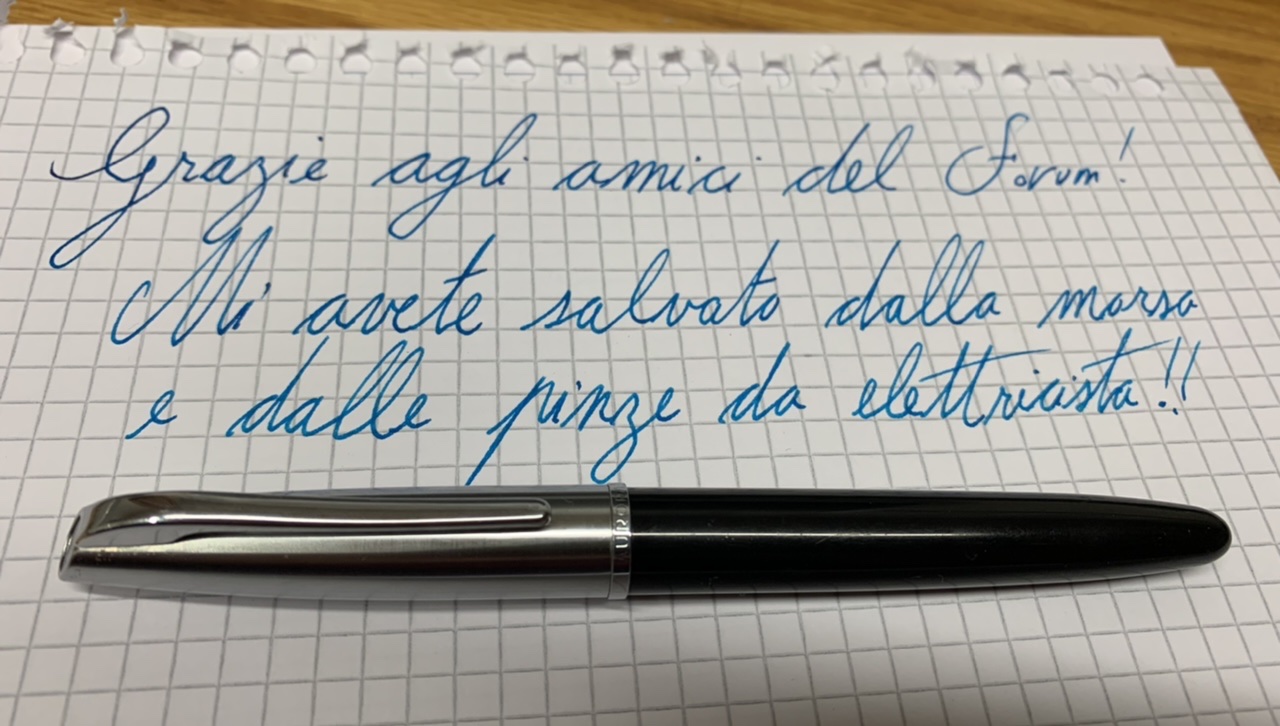 Grazie agli amici del Forum!
Mi avete salvato dalla morsa
e dalle pinze da elettricista!!